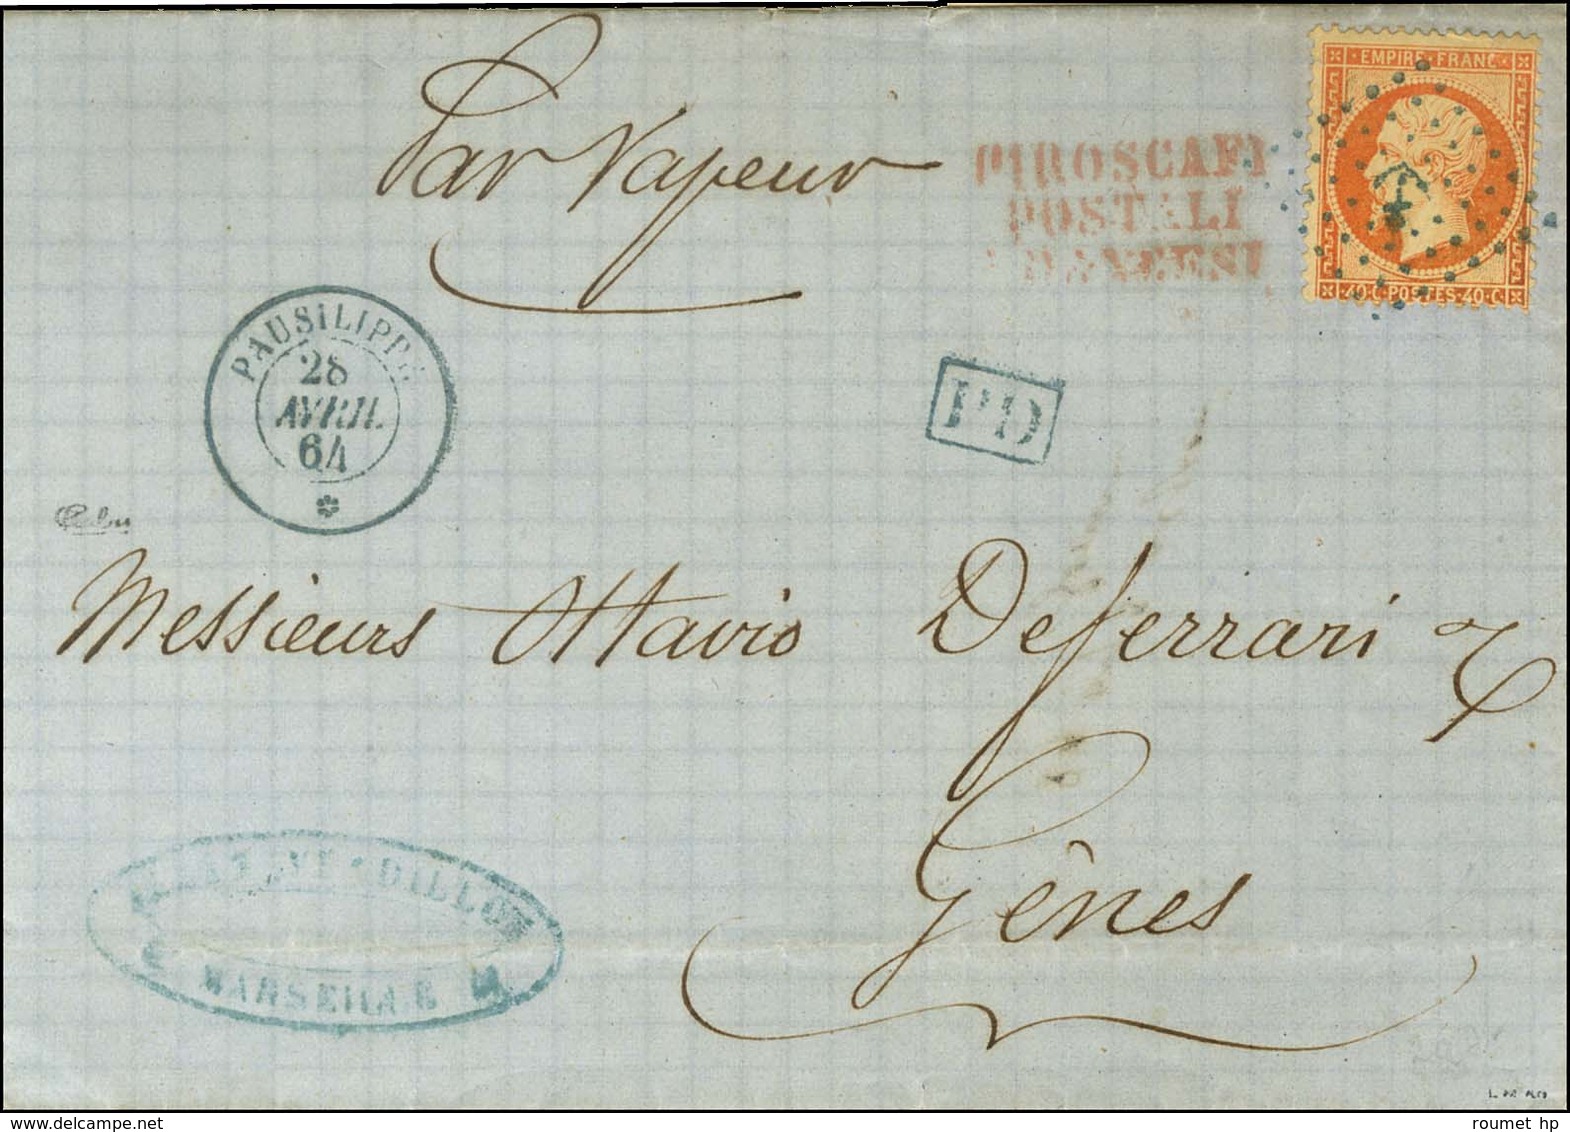 Par Vapeur
PIROSCAFI
POSTALI
EMPIRE · FRANC
40·C·POSTES·40·C
PAUSILIPPE
28
AVRIL
64
PD
Calves
Messieurs Ottavio Deferrari &
Gênes
DILLON
MARSEILLE
delcampe.net
roumet hp